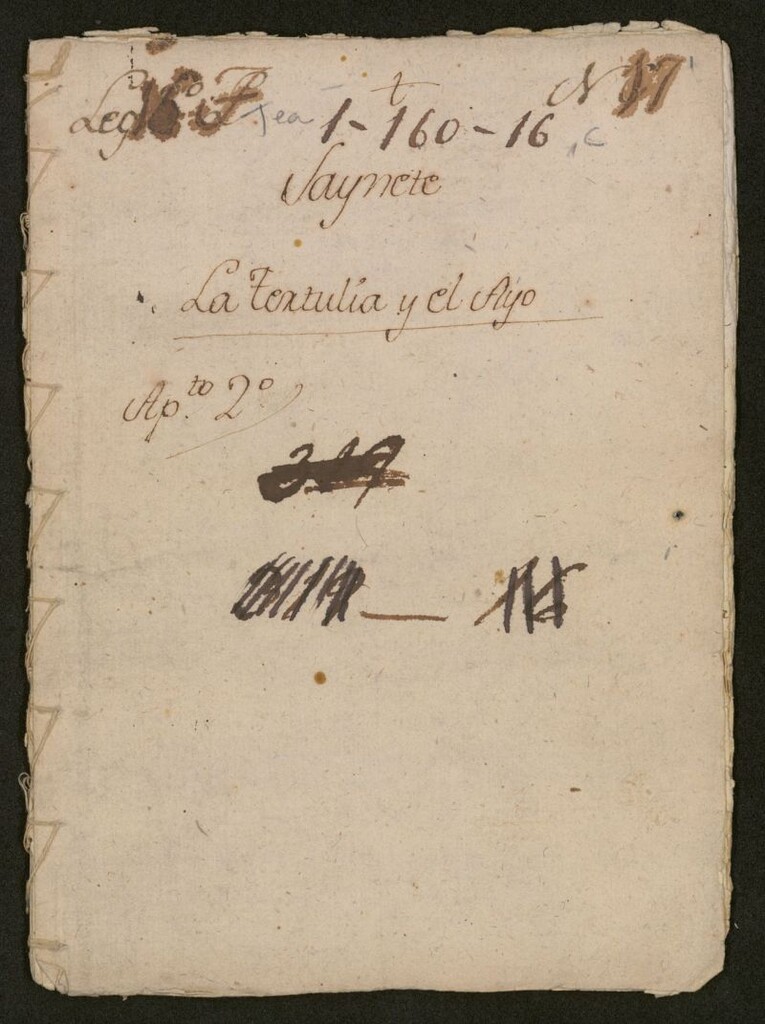 Leg.º
N 17
Tea 1-160-16, C
Saynete
La Tertulia y el Ayo
Ap.to 2º